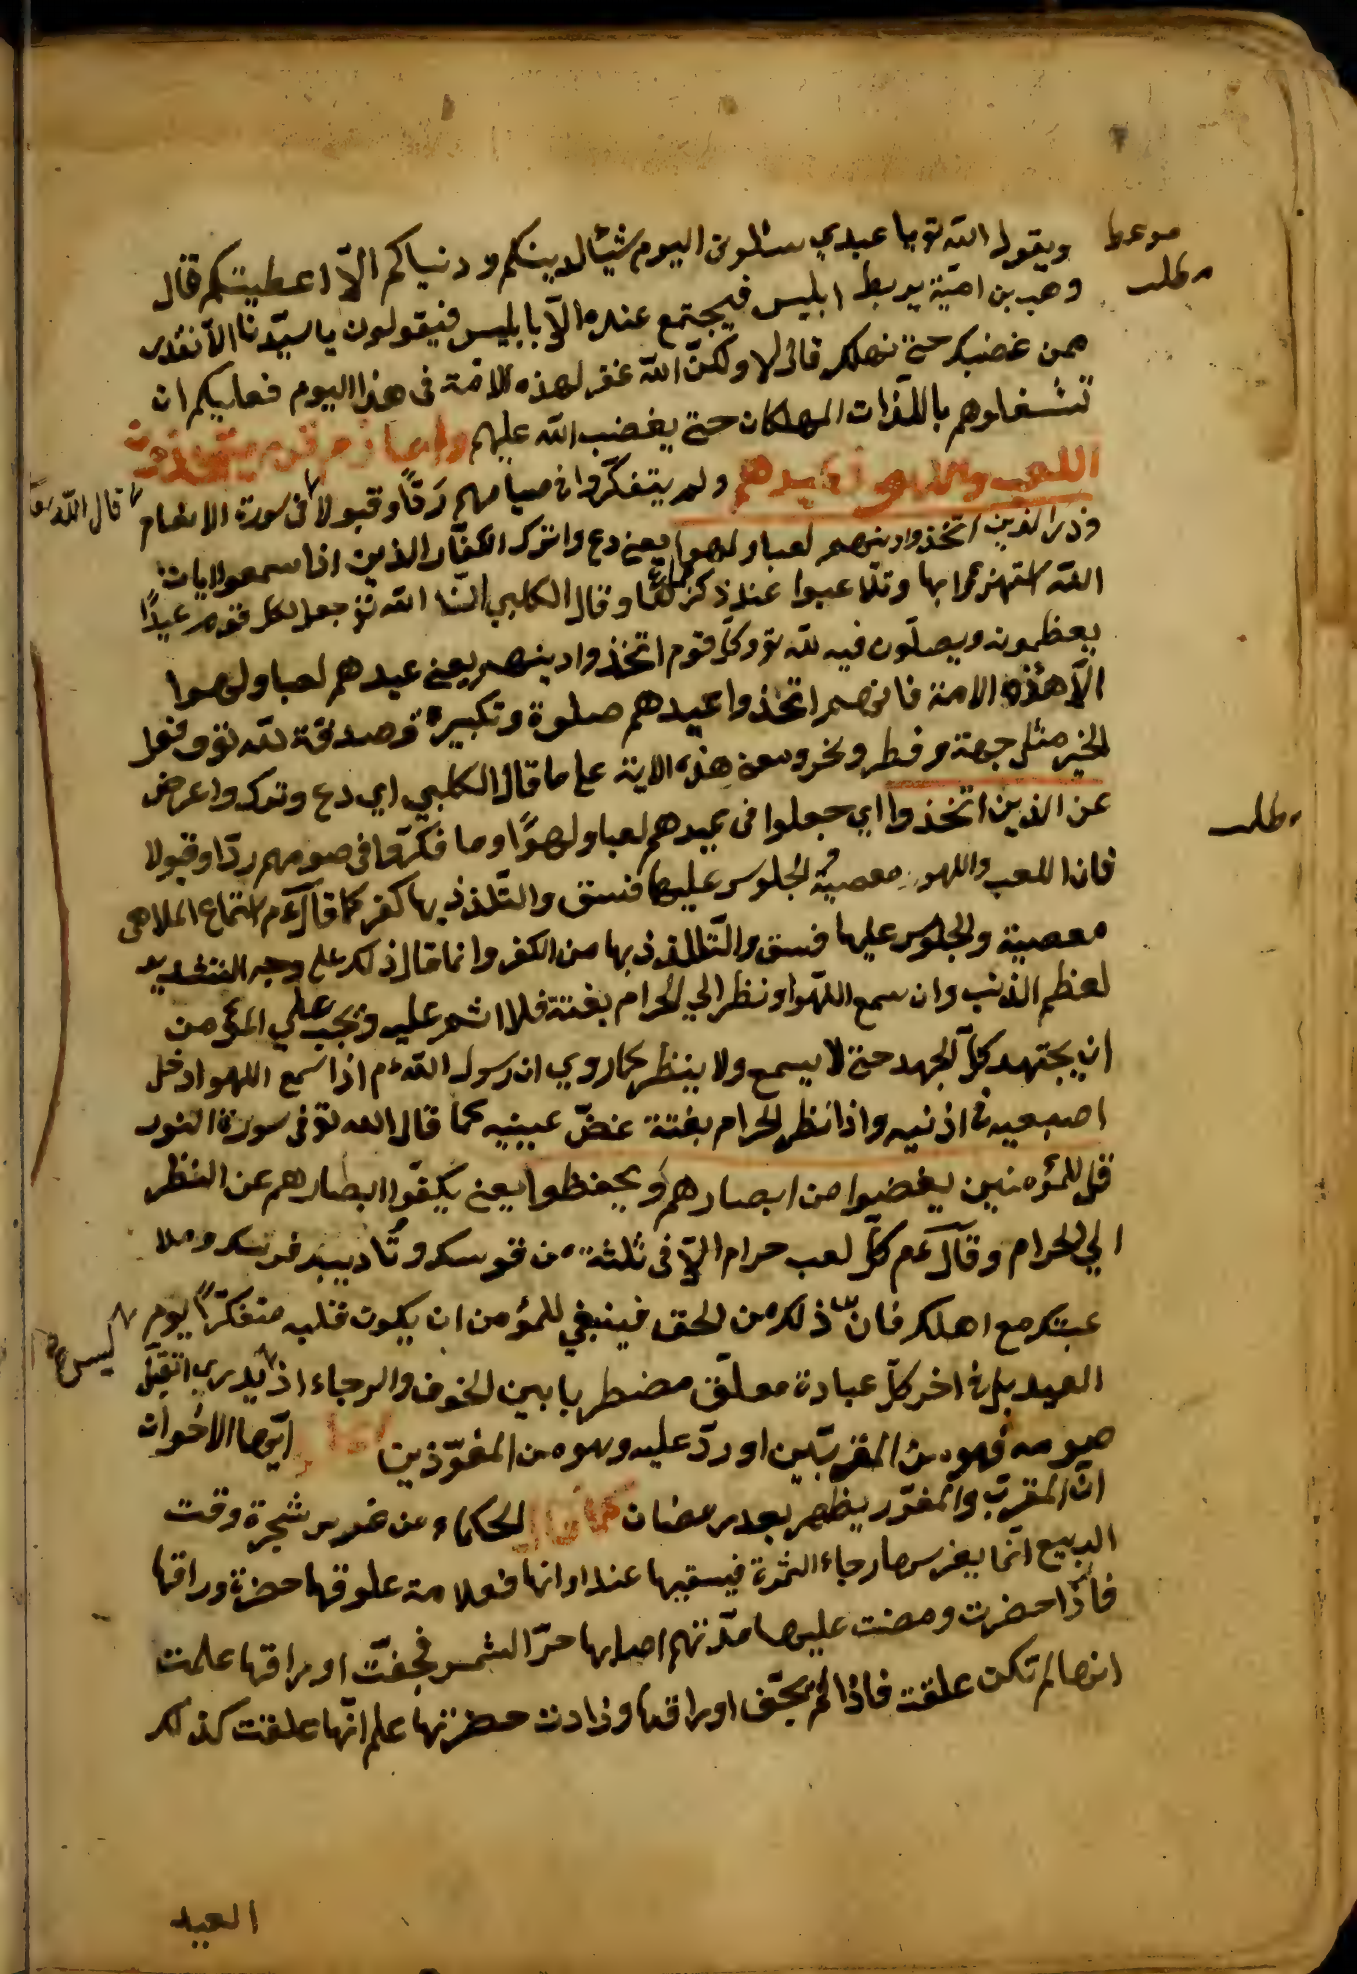 ويقول الله تع يا عبدي سئلوني اليوم شيئا لدينكم ودنياكم الّا اعطيتكم قال
موعظه
مطلب
وهب بن اميّة يربط ابليس فيجتمع عنده الّا باليس فيقولون يا سيّدنا الا نقدر
ممن غضبك حتى نهلك قال لا ولكنّ الله غفر لهذه الامة فى هذا اليوم فعليكم ان
تشغلوهم باللذات المهلكات حتى يغضب الله عليهم واما قوم يتخذون
اللعب واللهو فى عيدهم ولم يتفكّروا ان صيامهم ردّا وقبولا فى سورة الانعام قال الله تعا
وذر الذين اتخذوا دينهم لعبا ولهوا يعني دع واترك الكفّار الذين اذا سمعوا ايات
الله استهزؤا بها وتلاعبوا عند ذكرها وقال الكلبي ان الله تع جعل لكل قوم عيدًا
يعظمونه ويصلّون فيه لله تع وكلّ قوم اتخذوا دينهم يعني عيدهم لعبا ولهوا
الّا هذه الامة فانهم اتخذوا عيدهم صلوة وتكبيرة وصدقة لله تع وفعل
الخير مثل جمعة وفطر ونحر ومعنى هذه الاية على ما قال الكلبي اي دع وترك واعرض
عن الذين اتخذوا اي جعلوا فى عيدهم لعبا ولهوًا وما فكّروا فى صومهم ردّا وقبولا
مطلب
فان اللعب واللهو معصية والجلوس عليها فسق والتّلذذ بها كفر كما قال عم استماع الملاهى
معصية والجلوس عليها فسق والتّلذذ بها من الكفر وانما قال ذلك على وجه التشديد
لعظم الذنب وان سمع اللّهو او نظر الي الحرام بغتة فلا اثم عليه ويجب على المؤمن
ان يجتهد كلّ الجهد حتى لا يسمع ولا ينظر كما روي ان رسول الله عم اذا سمع اللهو ادخل
اصبعيه فى اذنيه واذا نظر الحرام بغتة غضّ عينيه كما قال الله تع فى سورة النور
قل للمؤمنين يغضوا من ابصارهم ويحفظوا يعني يكفّوا ابصارهم عن النظر
الي الحرام وقال عم كلّ لعب حرام الّا فى ثلثة من قوسك وتأديبه فرسك وملا
عبتك مع اهلك فانّ ذلك من الحق فينبغي للمؤمن ان يكون قلبه متفكّرًا يوم
ليس هذا
العيد بل فى اخر كلّ عبادة معلّق مضطربا بين الخوف والرجاء اذ يدري اتقبّل
صومه فهو من المقربّين او ردّ عليه وهو من اعلم ايّها الاخوان
انّ المقرّب يظهر بعد رمضان كما قال الحكماء من غرس شجرة وقت
الربيع انّما يغرسها رجاء الثمرة فيسقيها عند اوانها فعلامة علوقها حضرة وراقها
فاذا حضرت ومضت عليها مدّة ثم اصابها حرّ الشمس فجفّت اوراقها علمت
انها لم تكن علقت فاذا لم تجفّ اوراقها وزادت حضرتها علم انّها علقت كذلك
العيد